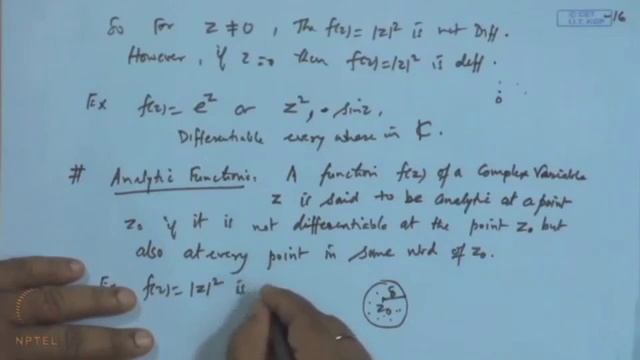 So For z ≠ 0, The f(z) = |z|² is not Diff.
However, if z = 0 then f(z) = |z|² is diff.
Ex f(z) = e^z or z², sin z,
Differentiable every where in ℂ.
# Analytic Functions. A function f(z) of a Complex Variable
z is said to be analytic at a point
z₀ if it is not differentiable at the point z₀ but
also at every point in some nbd of z₀.
Ex f(z) = |z|² is
δ
z₀
© CET
I.I.T. KGP
NPTEL